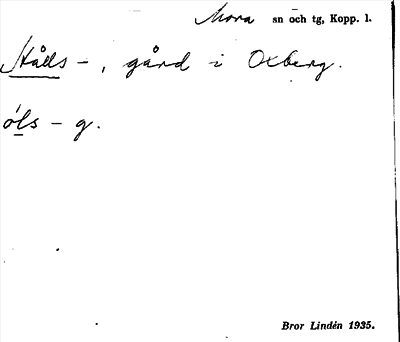 Mora sn och tg, Kopp. 1.
Ståls -, gård i Oxberg.
óls - g.
Bror Lindén 1935.